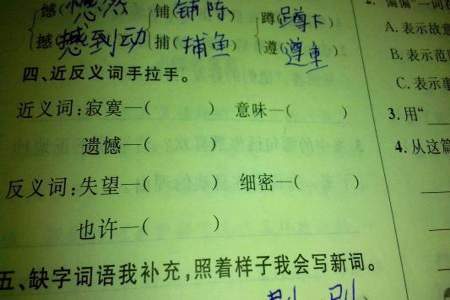 憾( 铺(铺陈 蹲(蹲下
撼(撼动 捕(捕鱼 遵(遵重
四、近反义词手拉手。
近义词:寂寞—( ) 意味—( )
遗憾—( )
反义词:失望—( ) 细密—( )
也许—( )
五、缺字词语我补充,照着样子我会写新词。
A. 表示故意
B. 表示范围
C. 表示事
3. 用“
4. 从这篇